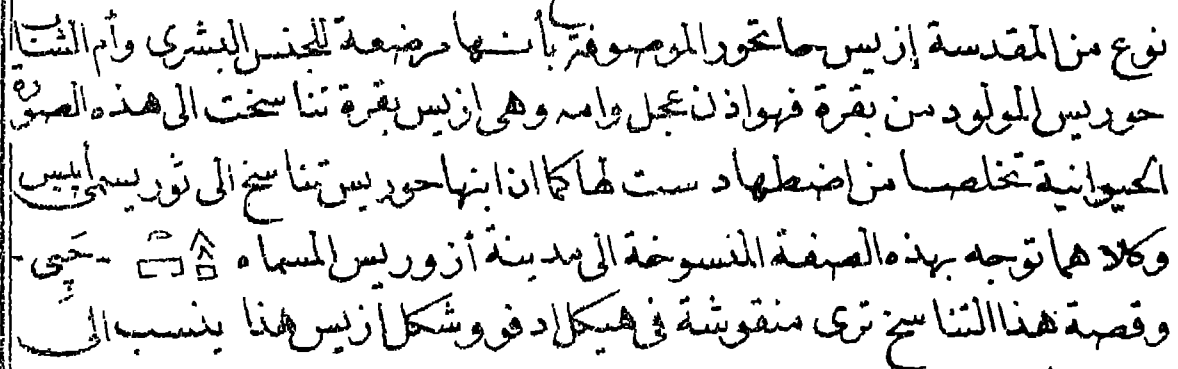 نوع من المقدسة إزيس حاتحور الموصوفة بأنها مرضعة للجنس البشرى وأم الشاب
حوريس المولود من بقرة فهو اذن عجل وامه وهى ازيس بقرة تناسخت الى هذه الصورة
الحيوانية تخلصا من اضطهاد ست لها كما ان ابنها حوريس تناسخ الى ثور يسمى أپيس
وكلاهما توجه بهذه الصفة المنسوخة الى مدينة أزوريس المسماه - حَپِى -
وقصة هذا التناسخ ترى منقوشة فى هيكل ادفو وشكل ازيس هنا ينسب الى